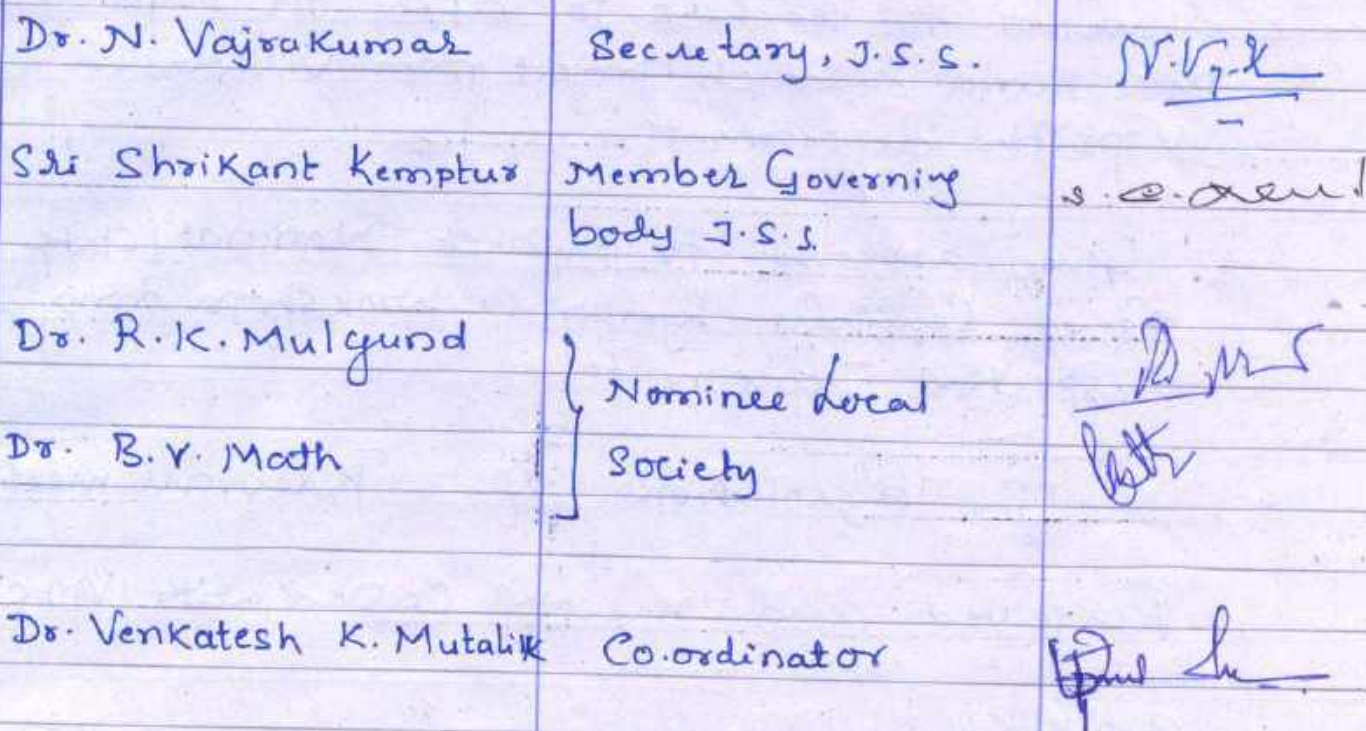 Dr. N. Vajrakumar Secretary, J.S.S.
Sri Shrikant Kemptur Member Governing
body J.S.S.
Dr. R.K. Mulgund
Nominee Local
Dr. B.V. Math Society
Dr. Venkatesh K. Mutalik Co.ordinator